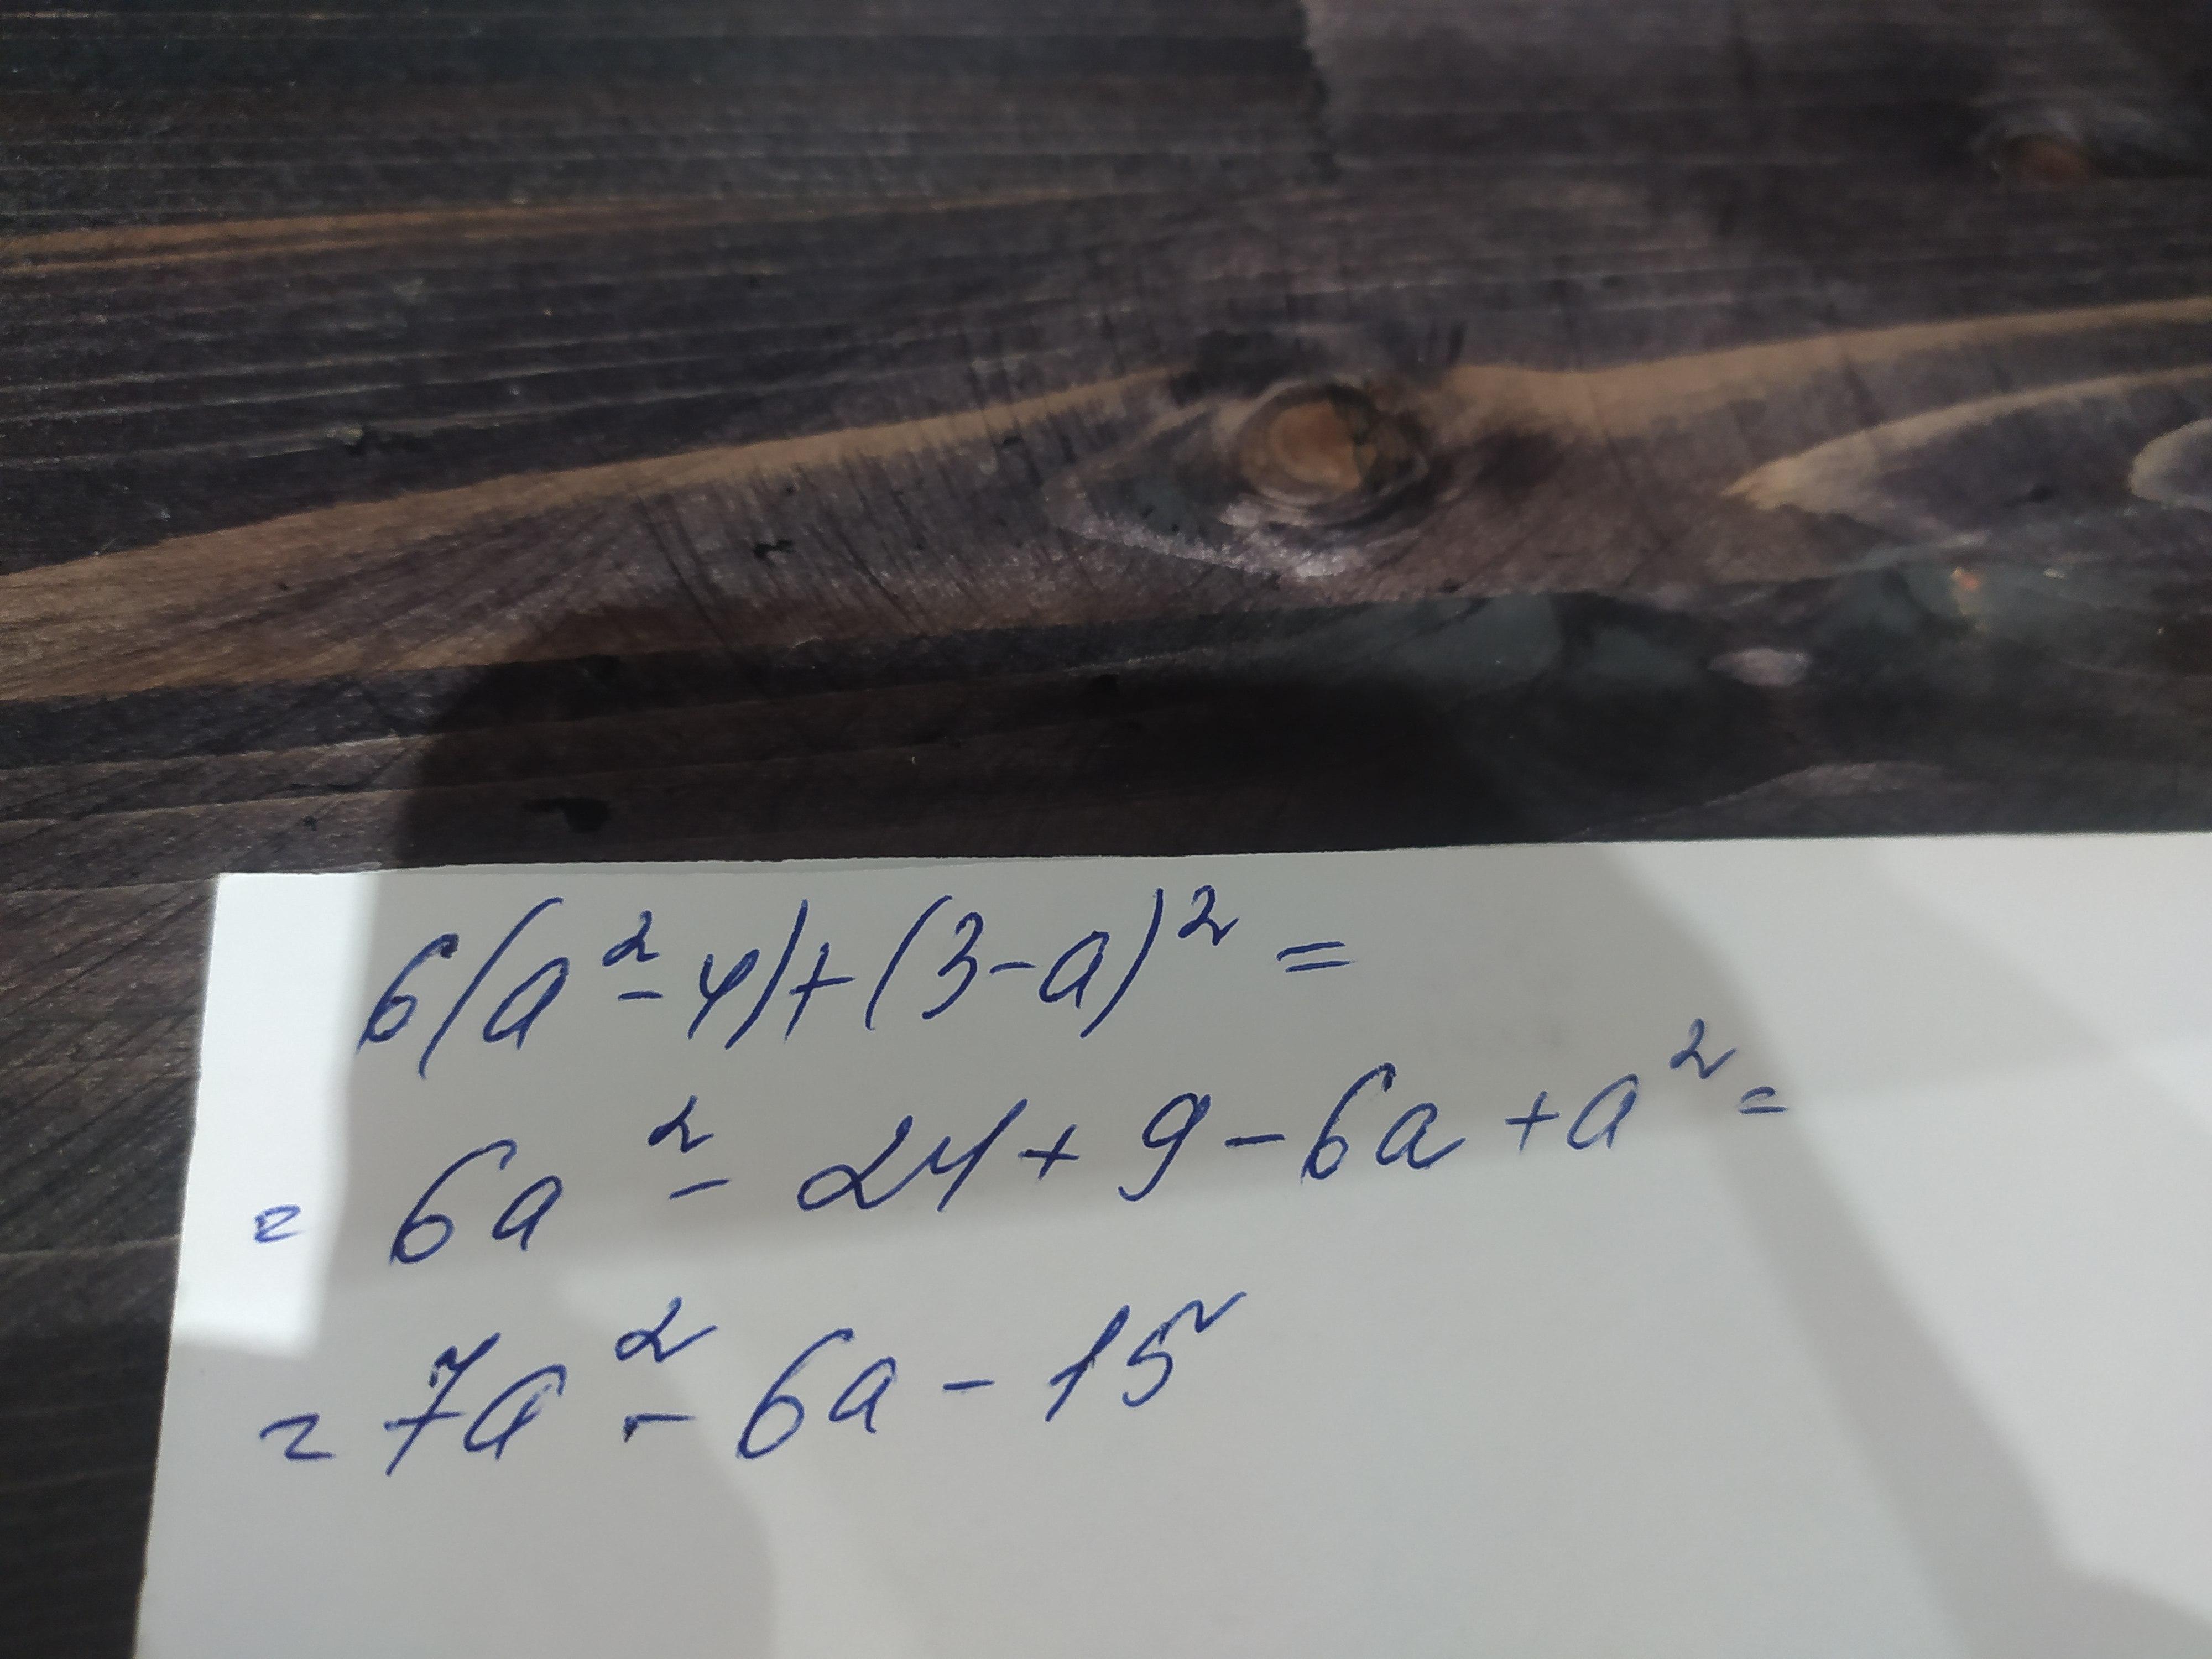 6(a²-4)+(3-a)²=
= 6a² - 24 + 9 - 6a + a² =
= 7a² - 6a - 15